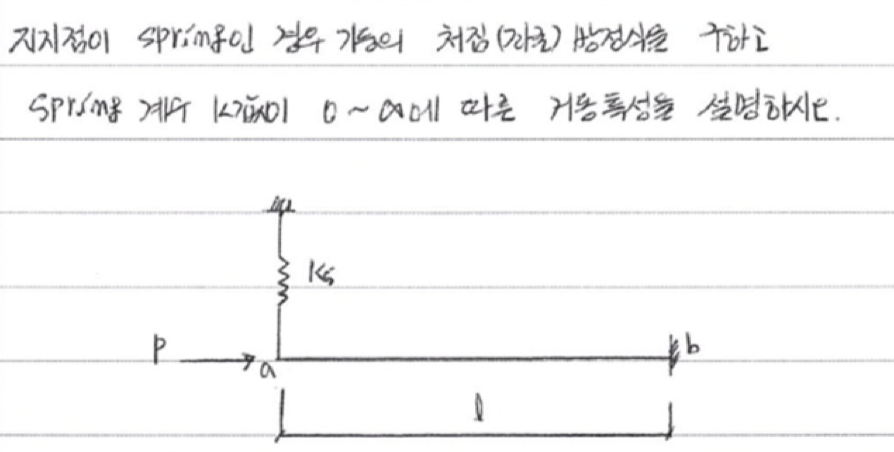 지지점이 spring인 경우 기둥의 처짐(좌굴) 방정식을 구하고
spring 계수 k값이 0 ~ ∞에 따른 거동특성을 설명하시오.
ks
P
a
b
l